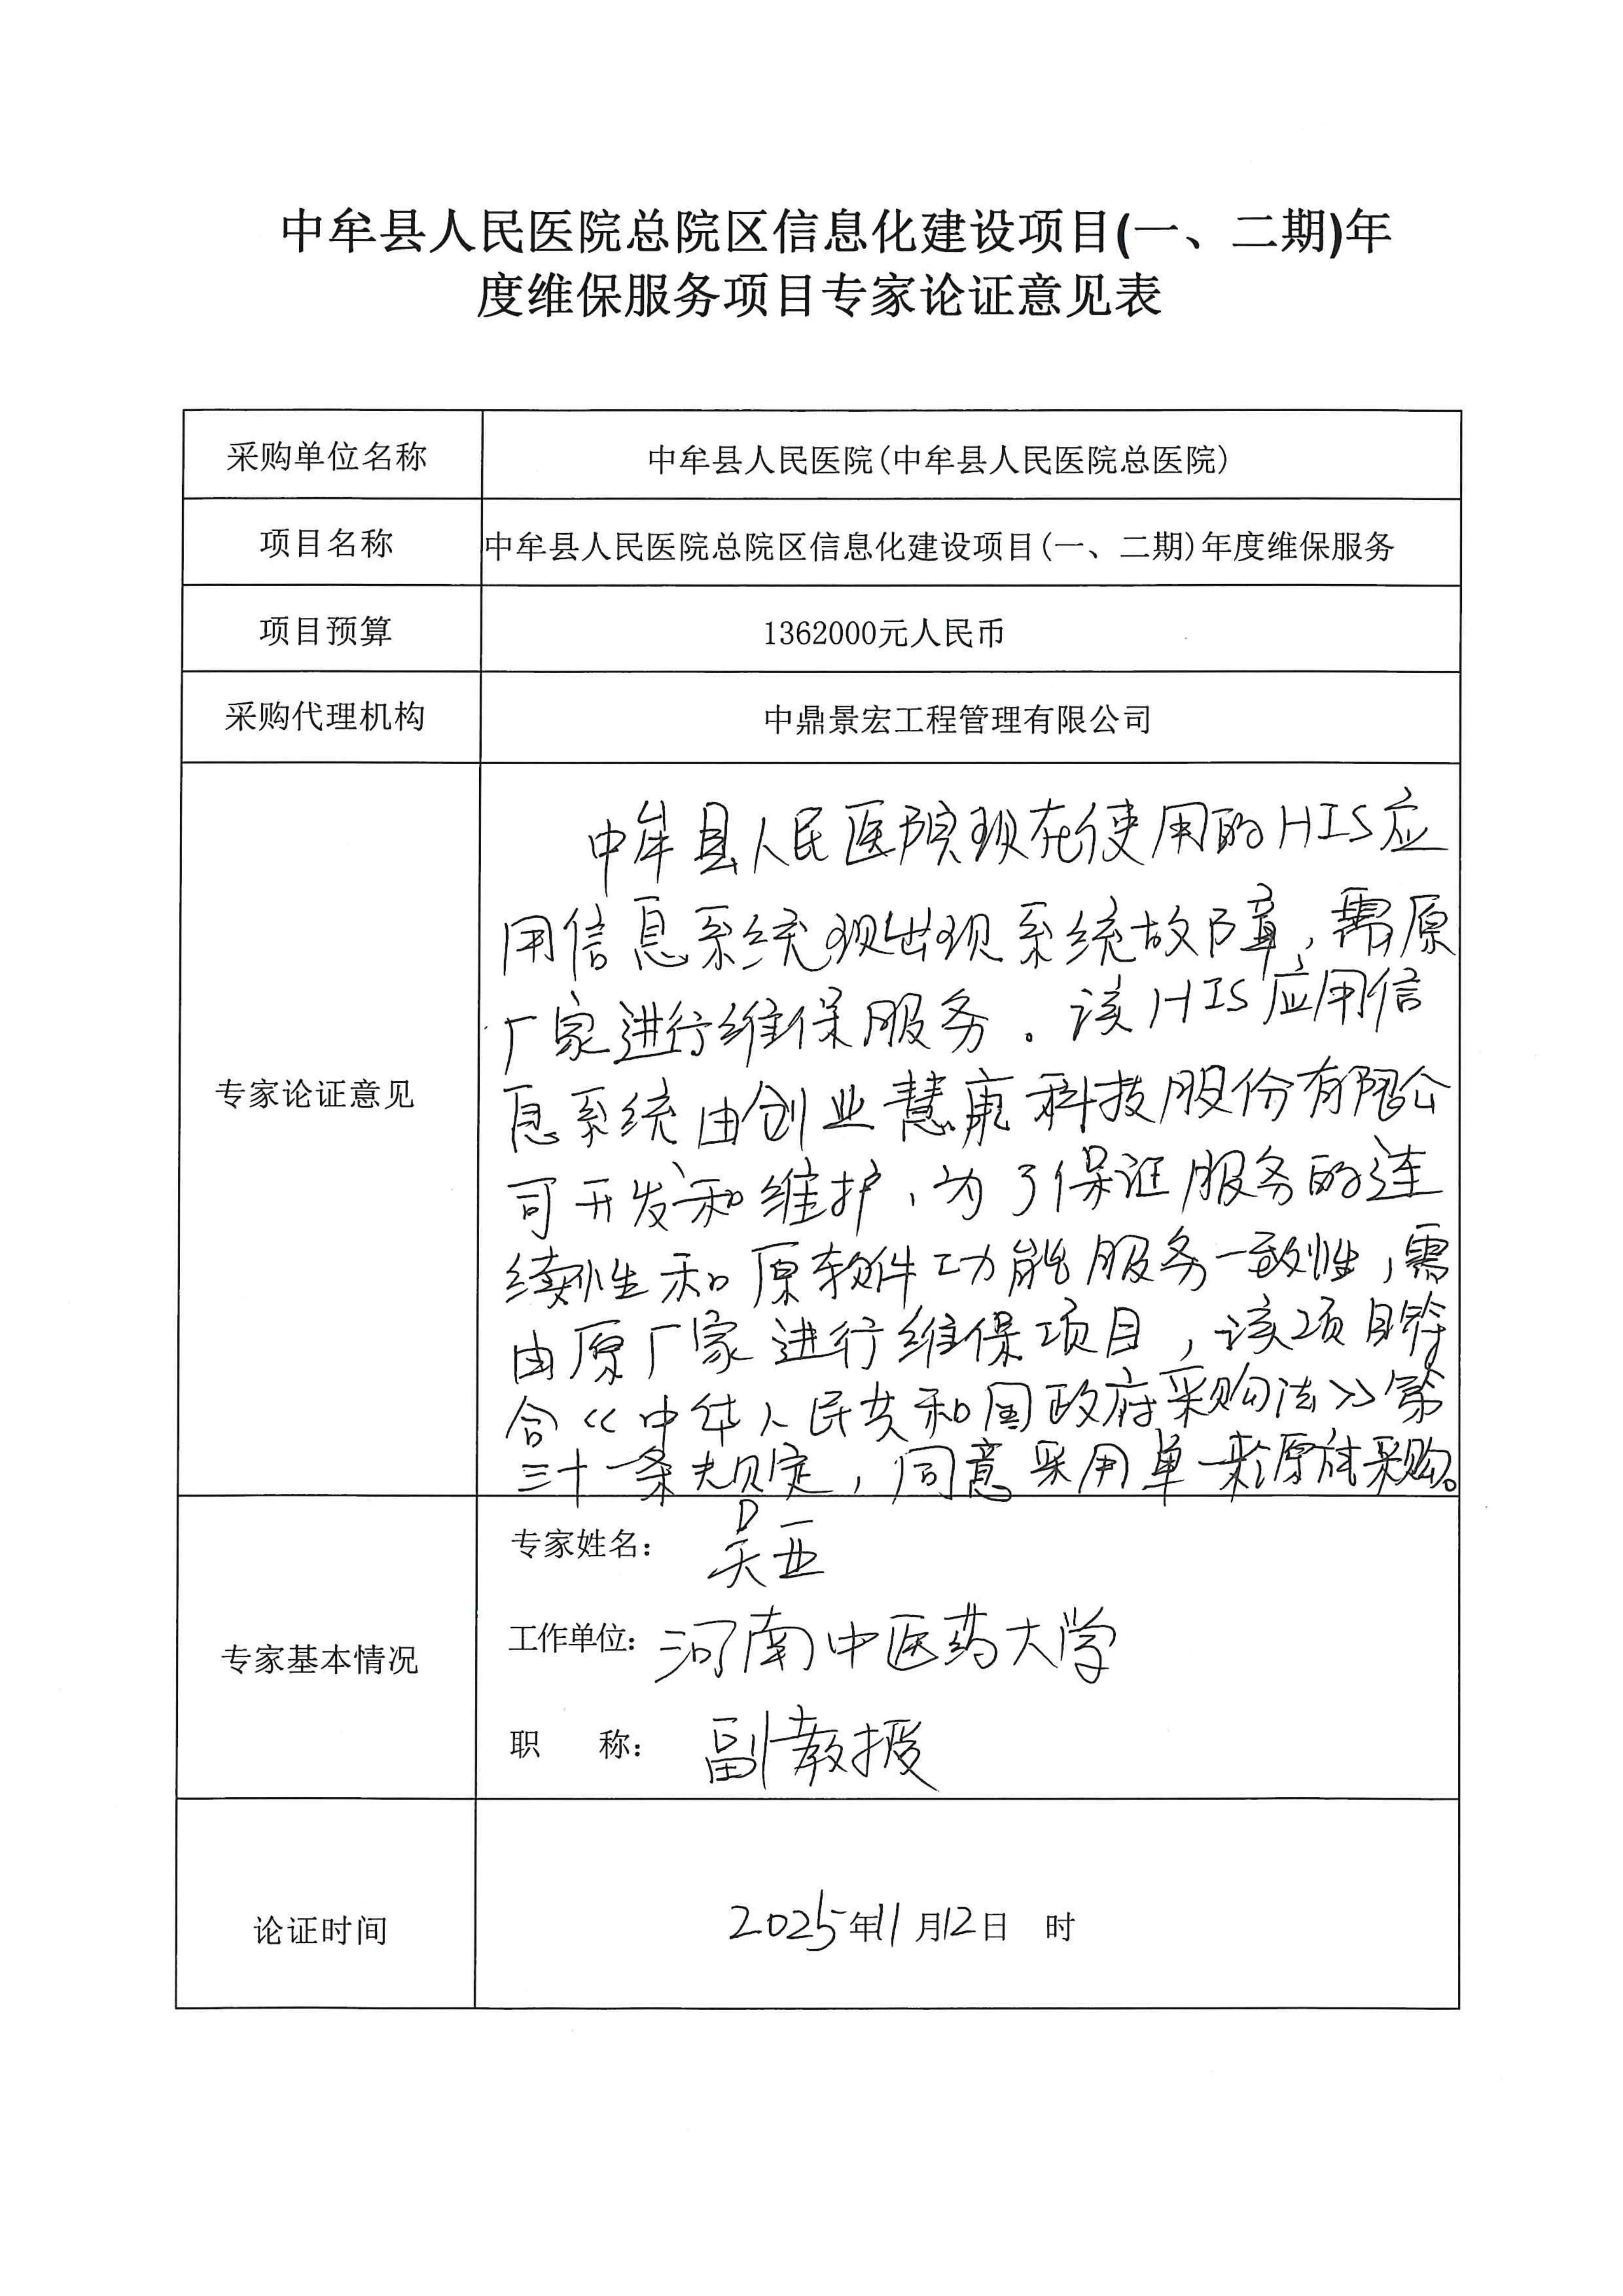 中牟县人民医院总院区信息化建设项目(一、二期)年
度维保服务项目专家论证意见表
采购单位名称
中牟县人民医院(中牟县人民医院总医院)
项目名称
中牟县人民医院总院区信息化建设项目(一、二期)年度维保服务
项目预算
1362000元人民币
采购代理机构
中鼎景宏工程管理有限公司
专家论证意见
中牟县人民医院现在使用的HIS应
用信息系统现出现系统故障,需原
厂家进行维保服务。该HIS应用信
息系统由创业慧康科技股份有限公
司开发和维护,为了保证服务的连
续性和原软件功能服务一致性,需
由原厂家进行维保项目,该项目符
合《中华人民共和国政府采购法》第
三十一条规定,同意采用单一来源方式采购。
专家基本情况
专家姓名: 吴亚
工作单位: 河南中医药大学
职 称: 副教授
论证时间
2025年11月12日 时